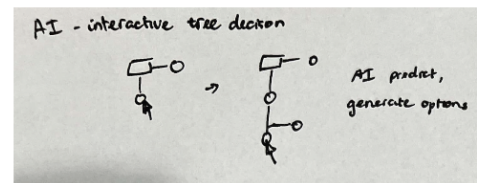 AI - interactive tree decison
AI predict,
generate options